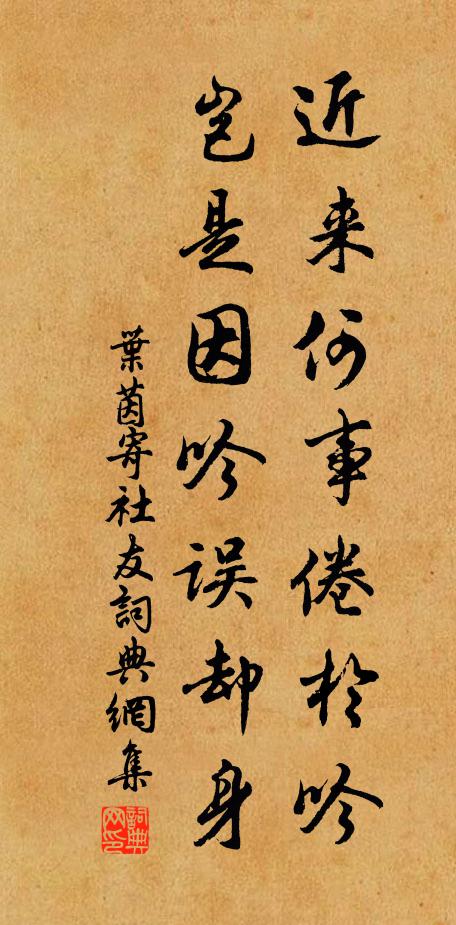 近来何事倦於吟
岂是因吟误却身
葉茵寄社友詞典網集
詞典网印